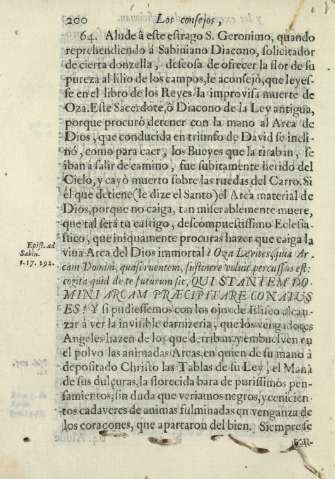 200 Los consejos,
64. Alude à este estrago S. Geronimo, quando
reprehendiendo à Sabiniano Diacono, solicitador
de cierta donzella, deseosa de ofrecer la flor de su
pureza al lilio de los campos, le aconsejò, que leyes-
se en el libro de los Reyes la improvisa muerte de
Oza. Este Sacerdote, ò Diacono de la Ley antigua,
porque procurò detener con la mano al Arca de
Dios, que conducida en triunfo de David se incli-
nò, como para caer, los Bueyes que la tiraban, se
iban à salir de camino, fue subitamente herido del
Cielo, y cayò muerto sobre las ruedas del Carro. Si
èl que detiene (le dize el Santo) el Arca material de
Dios, porque no caiga, tan miserablemente muere,
que tal serà tu castigo, descompuestissimo Eclesia-
stico, que iniquamente procuras hazer que caiga la
viua Arca del Dios immortal? Oza Levites, quia Ar-
Epist. ad
Sabin.
t. 17. 192.
cam Domini, quasi ruentem, sustinere voluit percussus est:
cogita quid de te futurum sit, QUI STANTEM DO-
MINI ARCAM PRÆCIPITARE CONATUS
ES? Y si pudiessemos con los ojos de Eliseo alcan-
zar à ver la invisible carnizeria, que los vengadores
Angeles hazen de los que derriban, y embuelven en
el polvo las animadas Arcas, en quien de su mano à
depositado Christo las Tablas de su Ley, el Manà
de sus dulçuras, la florecida bara de purissimos pen-
samientos, sin duda que veriamos negros, y cenicien-
tos cadaveres de animas fulminadas en venganza de
los coraçones, que apartaron del bien. Siempre se